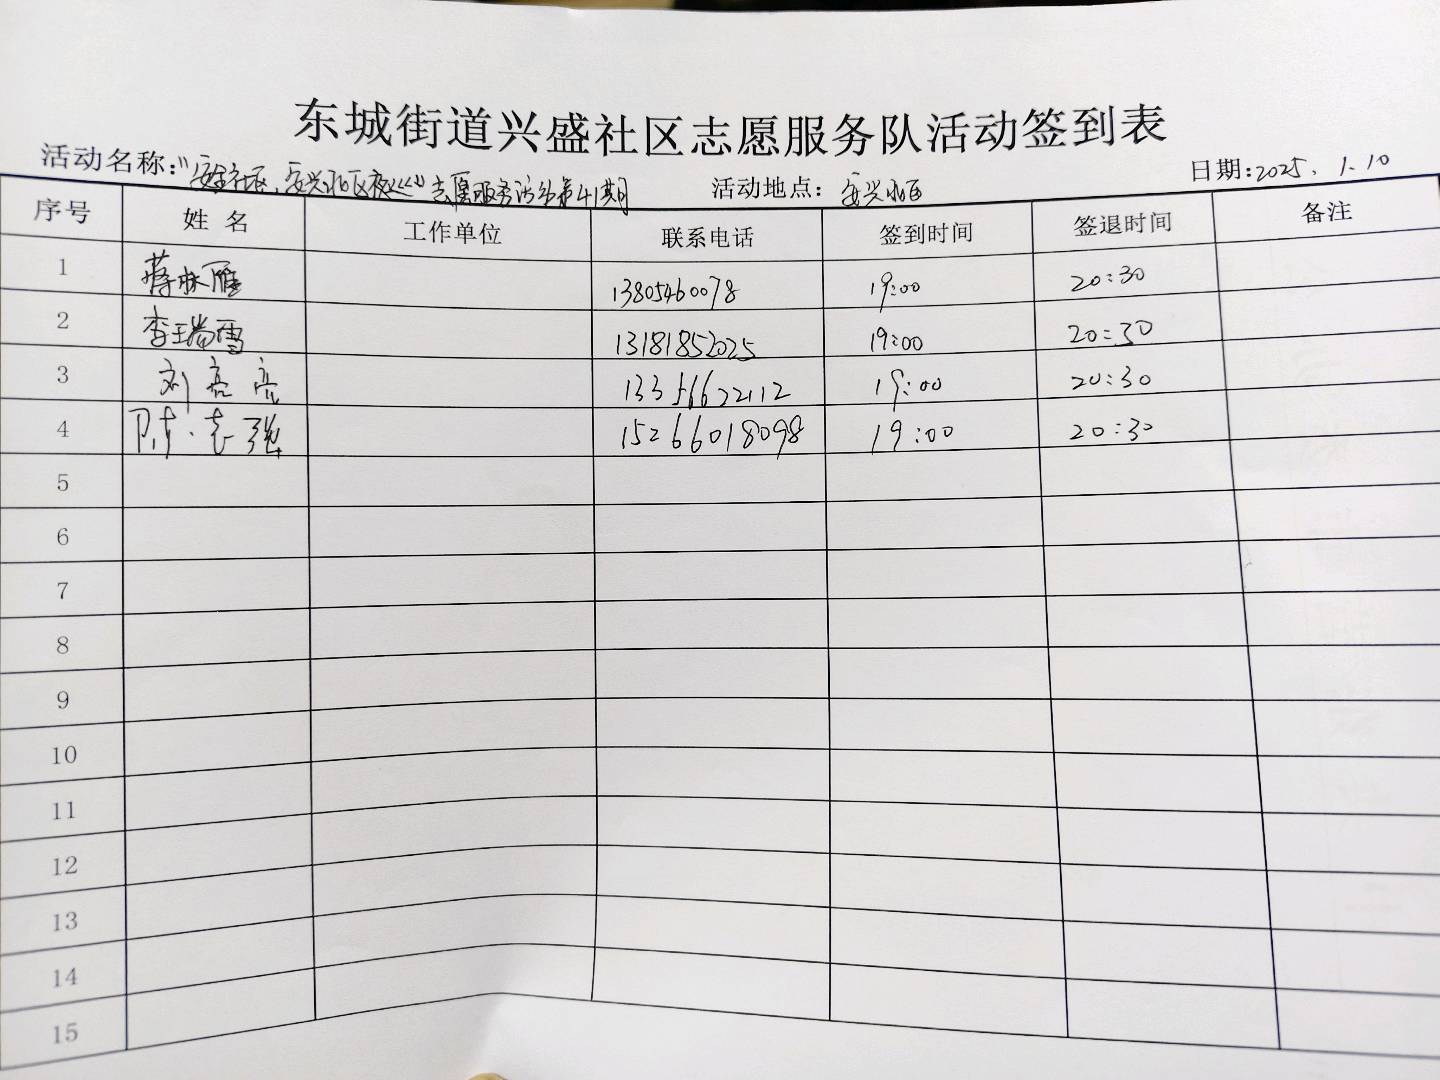 东城街道兴盛社区志愿服务队活动签到表
活动名称:"安全社区,安兴北区夜巡"志愿服务活动第41期 活动地点:安兴北区 日期:2025.1.10
序号 姓名 工作单位 联系电话 签到时间 签退时间 备注
1 蒋林雁 13805460078 19:00 20:30
2 李瑞雪 13181852025 19:00 20:30
3 刘亮亮 13356622112 19:00 20:30
4 陈志强 15266018098 19:00 20:30
5
6
7
8
9
10
11
12
13
14
15